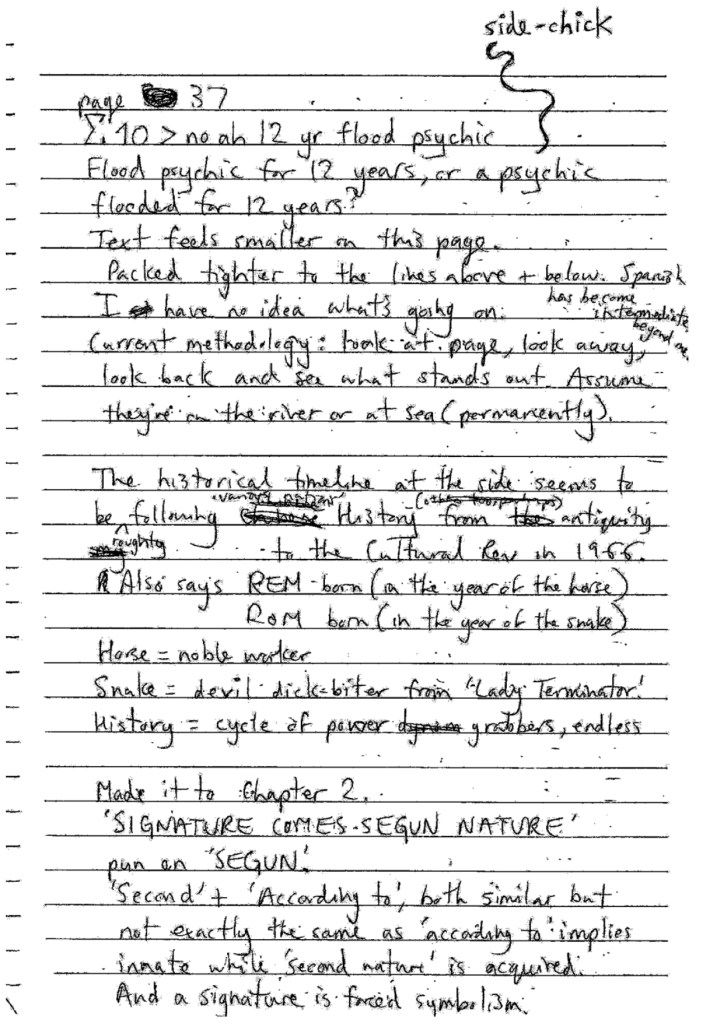 side-chick
page 37
Σ. 10 > no ah 12 yr flood psychic
Flood psychic for 12 years, or a psychic
flooded for 12 years?
Text feels smaller on this page.
Packed tighter to the lines above + below. Spanish
has become
intermediate
beyond me.
I have no idea what's going on.
Current methodology: look at page, look away,
look back and see what stands out. Assume
they're on the river or at sea (permanently).
The historical timeline at the side seems to
be following History from antiquity
roughly
to the Cultural Rev in 1966.
Also says REM born (in the year of the horse)
ROM born (in the year of the snake)
Horse = noble worker
Snake = devil dick-biter from 'Lady Terminator'
History = cycle of power grabbers, endless
Made it to Chapter 2.
'SIGNATURE COMES SEGUN NATURE'
pun on 'SEGUN'.
'Second' + 'According to', both similar but
not exactly the same as 'according to' implies
innate while 'second nature' is acquired.
And a signature is forced symbolism.